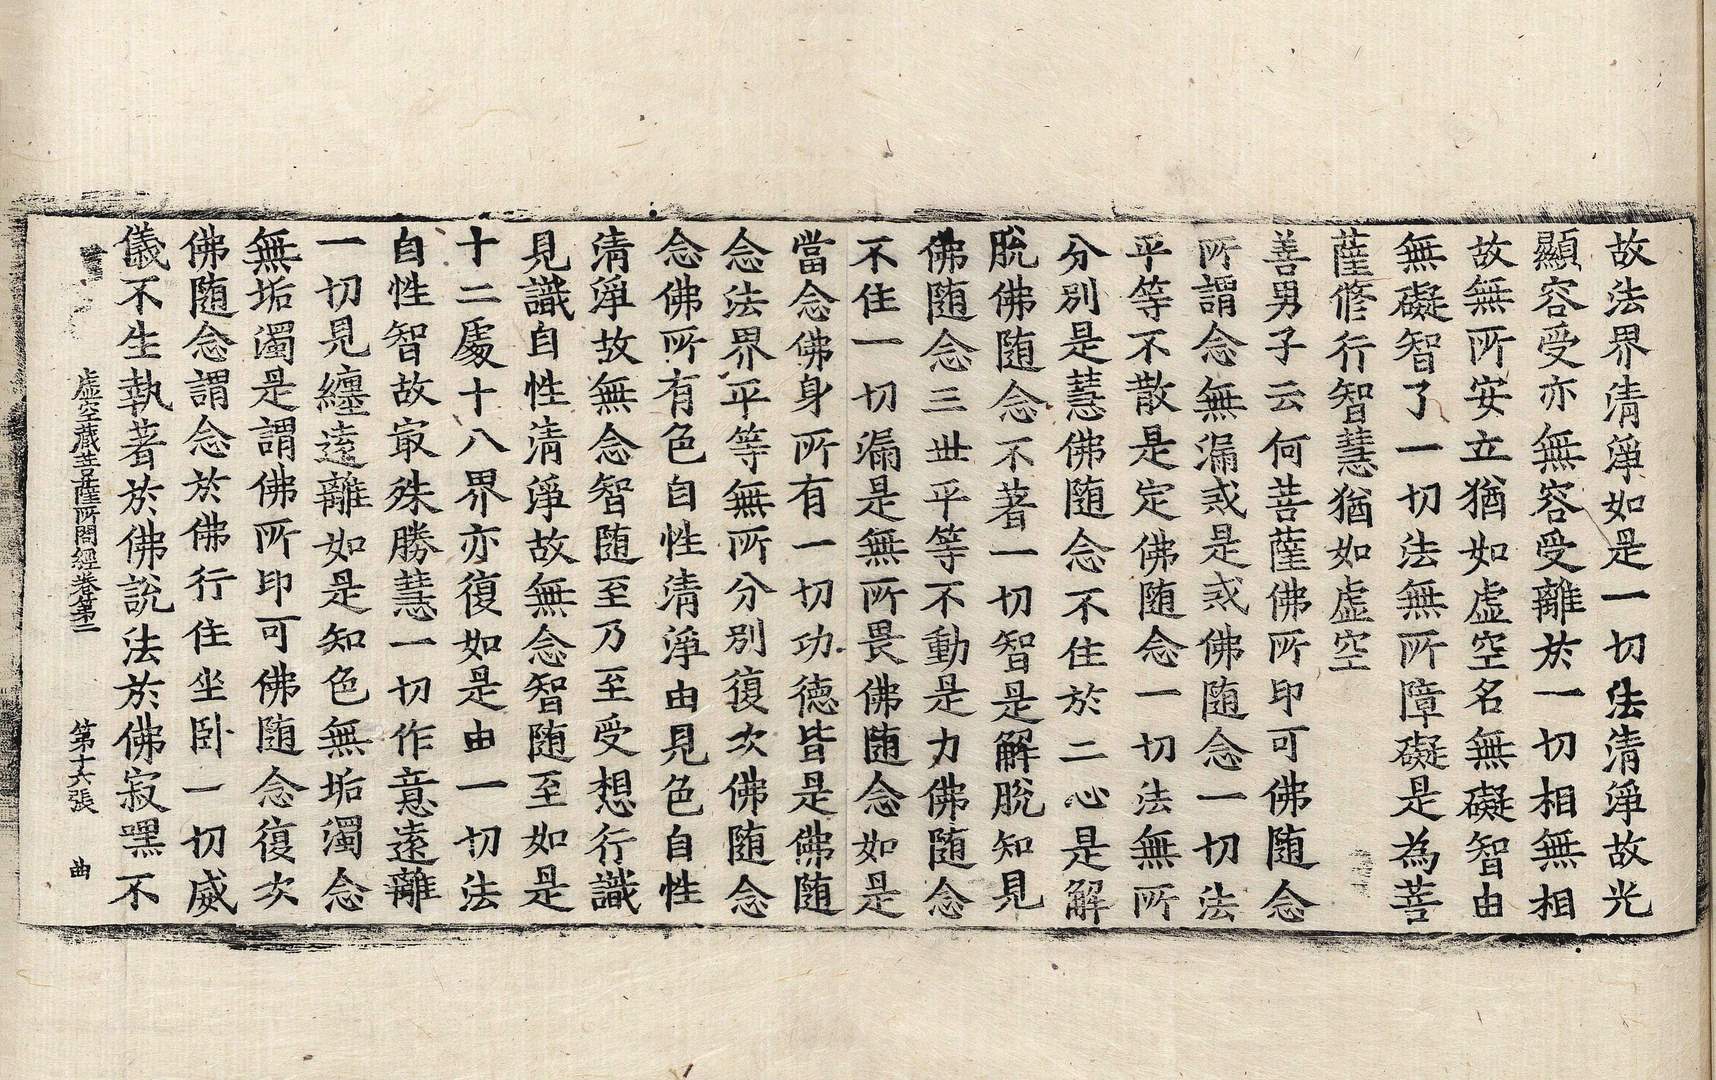 故法界清淨如是一切法清淨故光
顯容受亦無容受離於一切相無相
故無所安立猶如虛空名無礙智由
無礙智了一切法無所障礙是為菩
薩修行智慧猶如虛空
善男子云何菩薩佛所印可佛随念
所謂念無漏或是或佛随念一切法
平等不散是定佛随念一切法無所
分別是慧佛随念不住於二心是解
脫佛随念不著一切智是解脫知見
佛随念三世平等不動是力佛随念
不住一切漏是無所畏佛随念如是
當念佛身所有一切功德皆是佛随
念法界平等無所分別復次佛随念
念佛所有色自性清淨由見色自性
清淨故無念智随至乃至受想行識
見識自性清淨故無念智随至如是
十二處十八界亦復如是由一切法
自性智故㝡殊勝慧一切作意遠離
一切見纏遠離如是知色無垢濁念
無垢濁是謂佛所印可佛随念復次
佛随念謂念於佛行住坐卧一切威
儀不生執著於佛說法於佛寂嘿不
虛空藏菩薩所問經卷第二 第十六張 曲